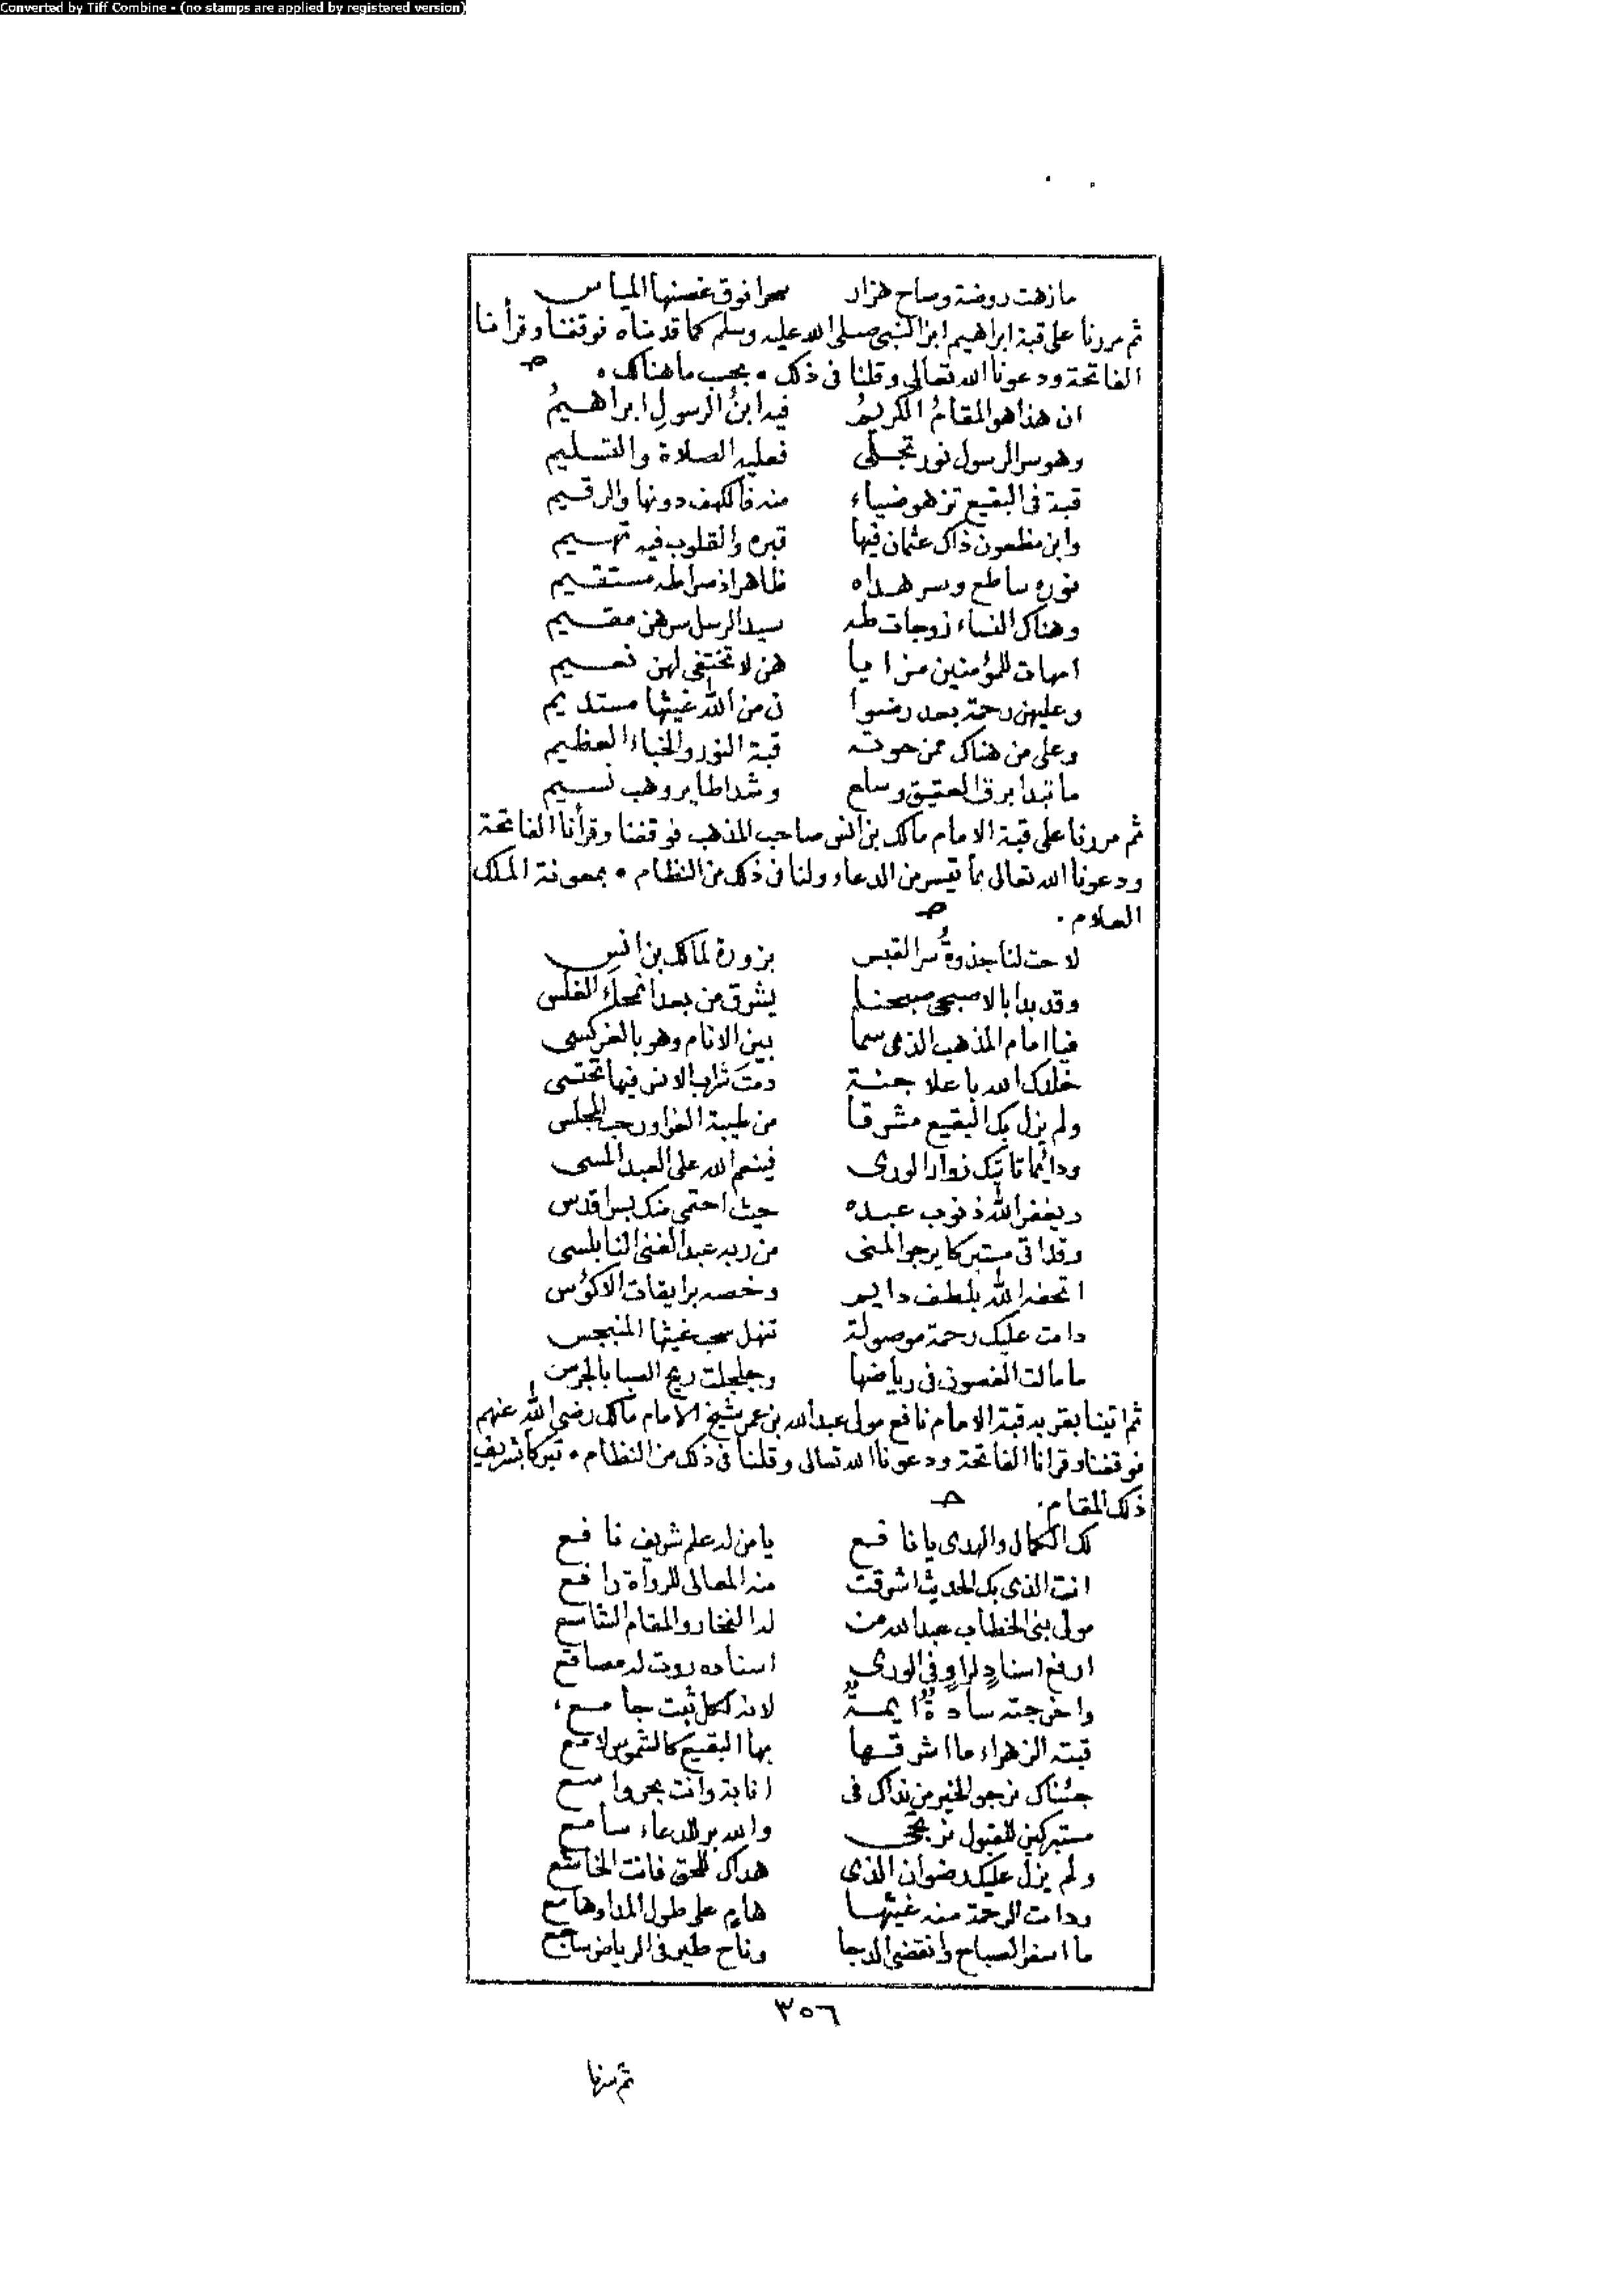 Converted by Tiff Combine - (no stamps are applied by registered version)
ما زهت روضة وصاح هزار سحرا فوق غصنها المياس
ثم مررنا على قبة ابراهيم ابن النبي صلى الله عليه وسلم كما قدمناه فوقفنا وقرأنا
الفاتحة ودعونا الله تعالى وقلنا في ذلك • بحسب ما هناك •
ان هذا هو المقامُ الكريمُ فيه ابنُ الرسولِ ابراهيمُ
وهو سر الرسول نور تجلى فعليه الصلاة والتسليم
قبة في البقيع تزهو ضياء منه فالكهف دونها والرقيم
وابن مظعون ذاك عثمان فيها قبره والقلوب فيه تهيم
نوره ساطع وسر هداه ظاهر اذ صراطه مستقيم
وهناك النساء زوجات طه سيد الرسل سرهن مقيم
امهات للمؤمنين مزايا هن لا تختفي لهن نعيم
وعليهن رحمة بعد رضوا ن من الله غيثها مستديم
وعلى من هناك ممن حوته قبة النور والخباء العظيم
ما تبدا برق العقيق وسلع وشدا طاير وهب نسيم
ثم مررنا على قبة الامام مالك بن انس صاحب المذهب فوقفنا وقرأنا الفاتحة
ودعونا الله تعالى بما تيسر من الدعاء ولنا في ذلك من النظام • بمعونة الملك
العلام •
لاحت لنا جذوةُ سر القبس بزورة لمالك بن انس
وقد بدا بالاصبحي صبحنا يشرق من بعد انمحاء الغلس
فيا امام المذهب الذي سما بين الانام وهو بالعز كسي
خلدك الله باعلا جنة دمت شراب الانس فيها تحتسي
ولم يزل بك البقيع مشرقا من طيبة الغرا ورحب المجلس
ودائما تاتيك زوار الورى فينعم الله على العبد المسي
ويغفر الله ذنوب عبده حيث احتمى منك بسر اقدس
وقد اتى مستبركا يرجو المنى من ربه عبد الغني النابلسي
اتحفه الله بلطف دايم وخصه برايقات الاكؤس
دامت عليك رحمة موصولة تنهل سحب غيثها المنبجس
ما مالت الغصون في رياضها وجلجلت ريح الصبا بالجرس
ثم اتينا بقربه قبة الامام نافع مولى عبد الله بن عمر شيخ الامام مالك رضي الله عنهم
فوقفنا وقرانا الفاتحة ودعونا الله تعالى وقلنا في ذلك من النظام • تبركا بشريف
ذلك المقام •
لك الكمال والهدى يا نافع يا من له علم شريف نافع
انت الذي بك الحديث اشرقت منه المعالي للرواة رافع
مولى بني الخطاب عبد الله من له الفخار والمقام الشاسع
ارفع اسنادٍ لراوٍ في الورى اسناده روت له مصاقع
واخرجته سادةٌ ايمةٌ لانه لكل ثبت جامع
قبته الزهراء ما اشرقها بها البقيع كالشموس لامع
جئناك نرجو الخير من نداك في انابة وانت بحر واسع
مستبركين للقبول نرتجي والله بر للدعاء سامع
ولم يزل عليك رضوان الذي هداك للحق فانت الخاشع
ودامت الرحمة منه غيثها هامٍ على طول المدا وهامع
ما اسفر الصباح وانقضى الدجا وناح طير في الرياض ساجع
٣٥٦
ثم سرنا